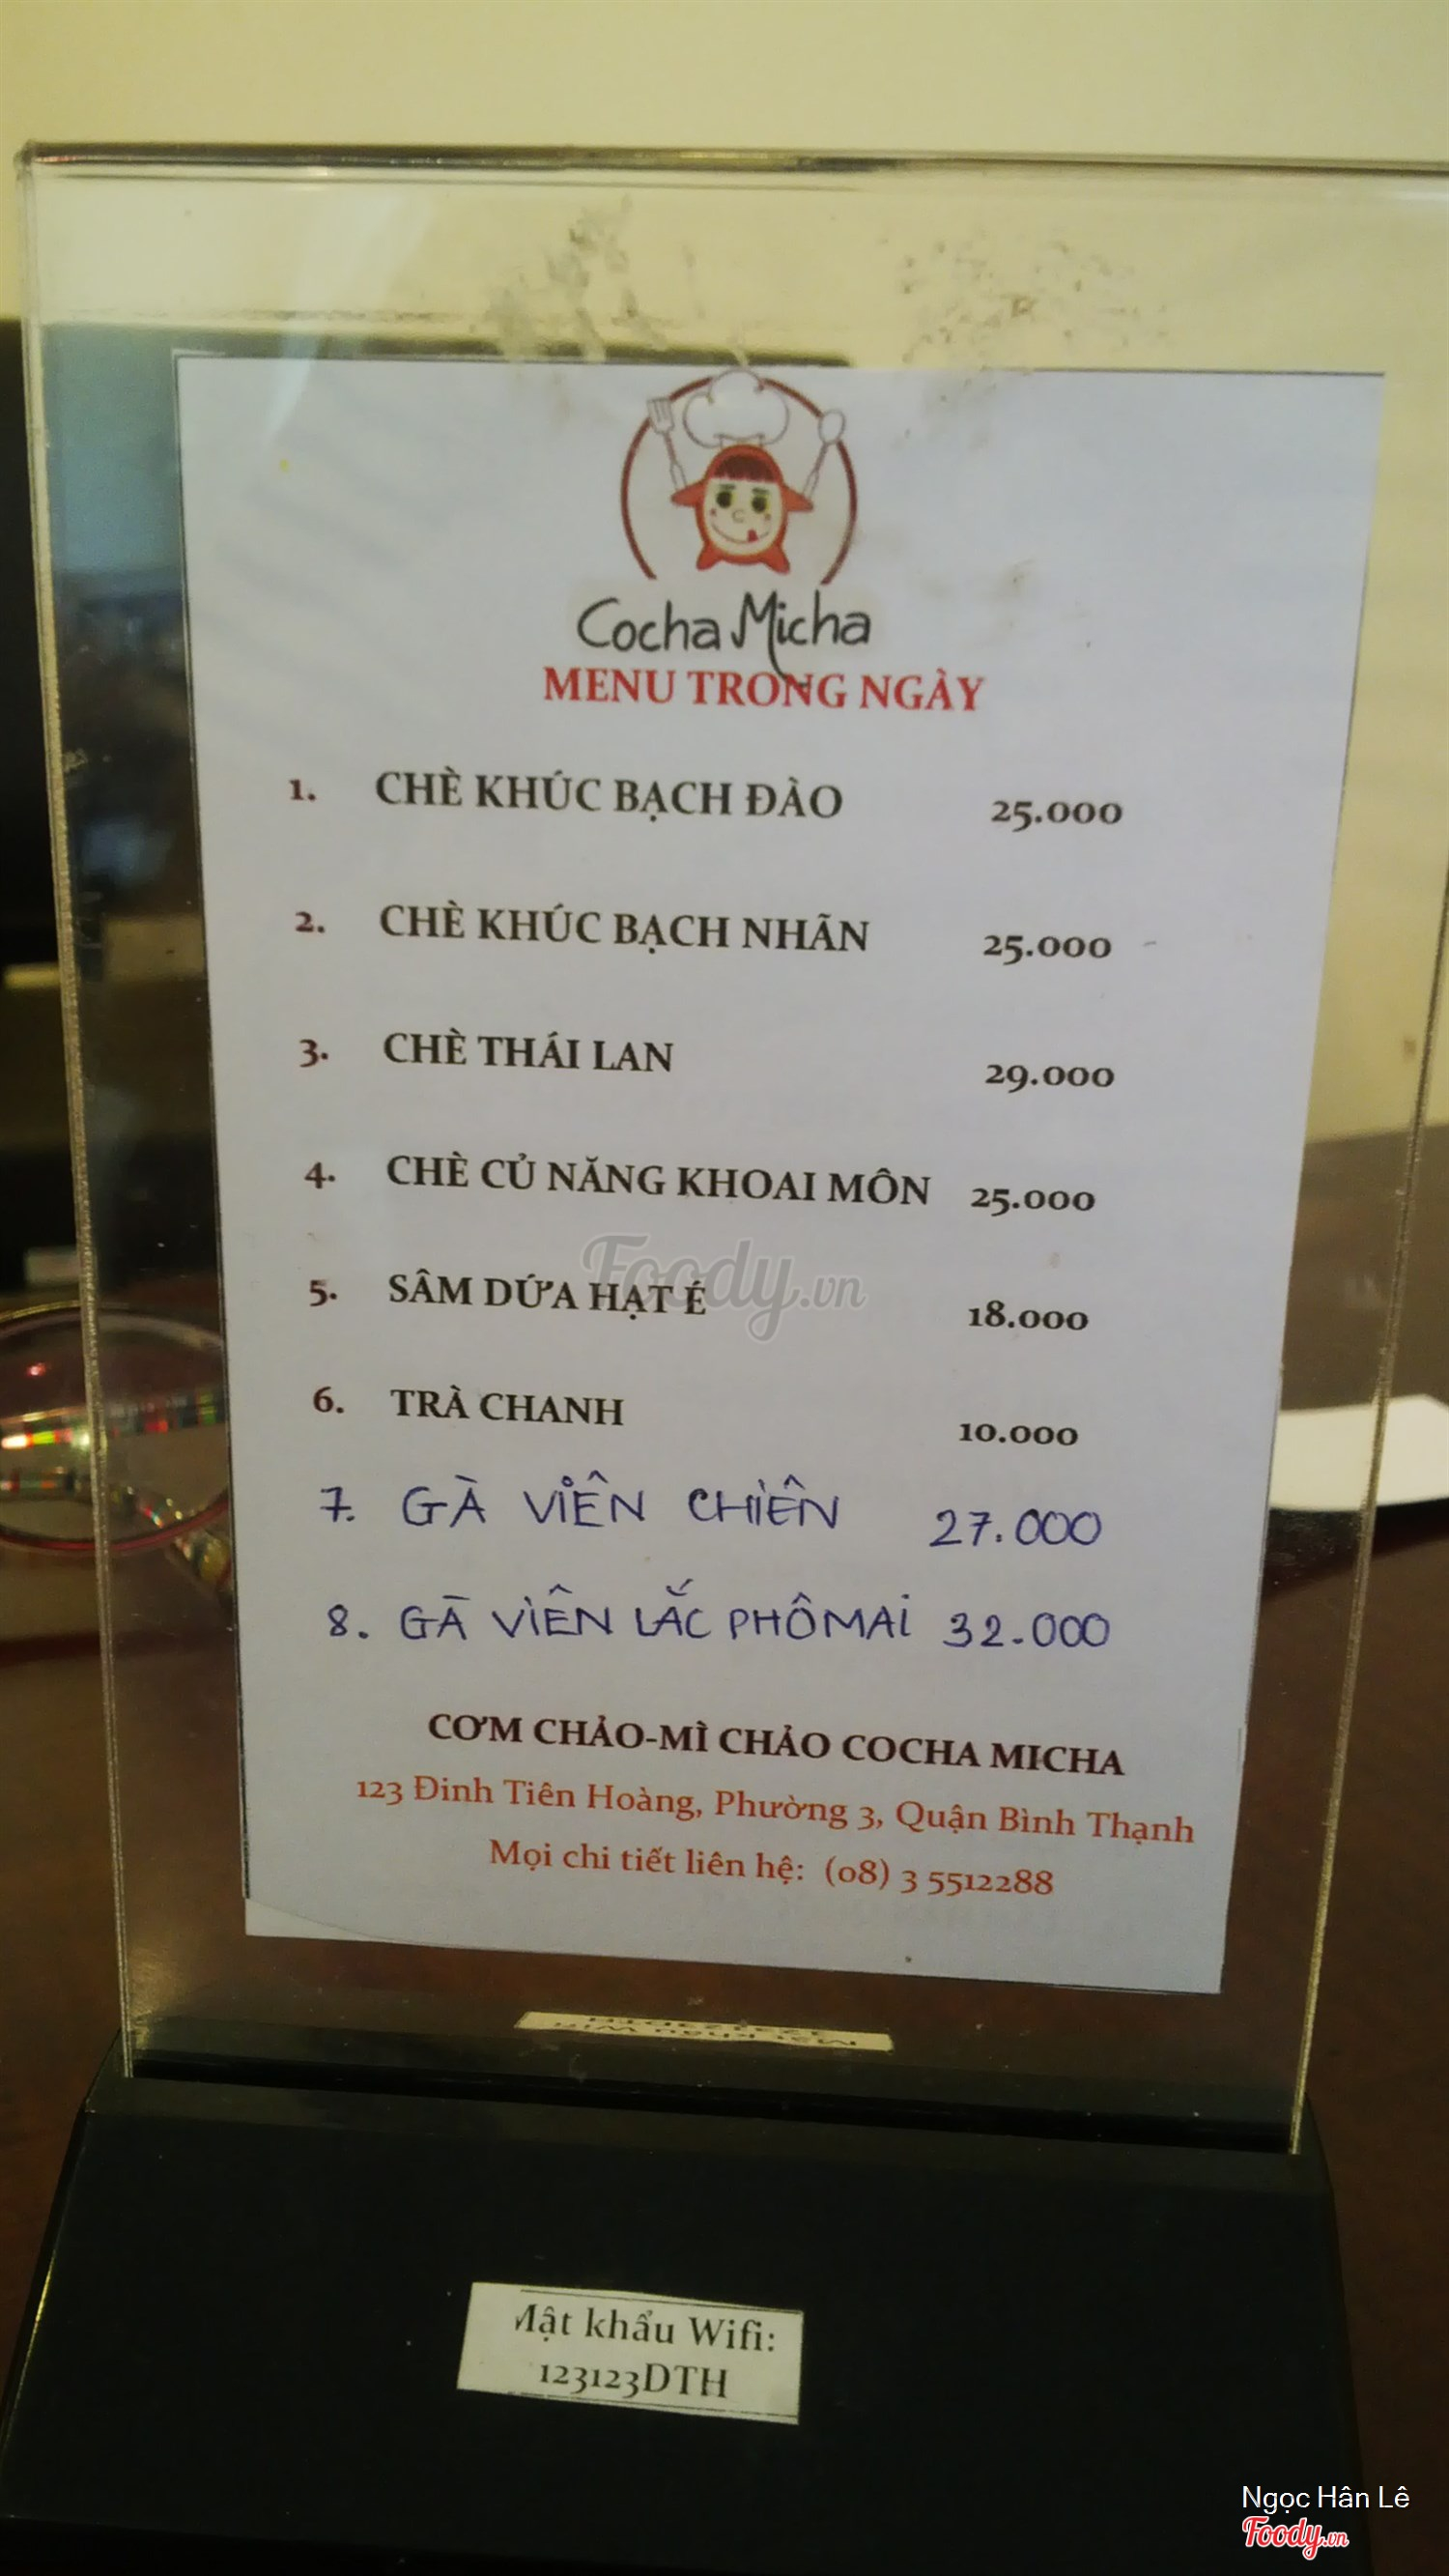 Cocha Micha
MENU TRONG NGÀY
1. CHÈ KHÚC BẠCH ĐÀO 25.000
2. CHÈ KHÚC BẠCH NHÃN 25.000
3. CHÈ THÁI LAN 29.000
4. CHÈ CỦ NĂNG KHOAI MÔN 25.000
5. SÂM DỨA HẠT É 18.000
Foody.vn
6. TRÀ CHANH 10.000
7. GÀ VIÊN CHIÊN 27.000
8. GÀ VIÊN LẮC PHÔMAI 32.000
CƠM CHẢO-MÌ CHẢO COCHA MICHA
123 Đinh Tiên Hoàng, Phường 3, Quận Bình Thạnh
Mọi chi tiết liên hệ: (08) 3 5512288
Mật khẩu Wifi:
123123DTH
Ngọc Hân Lê
Foody.vn